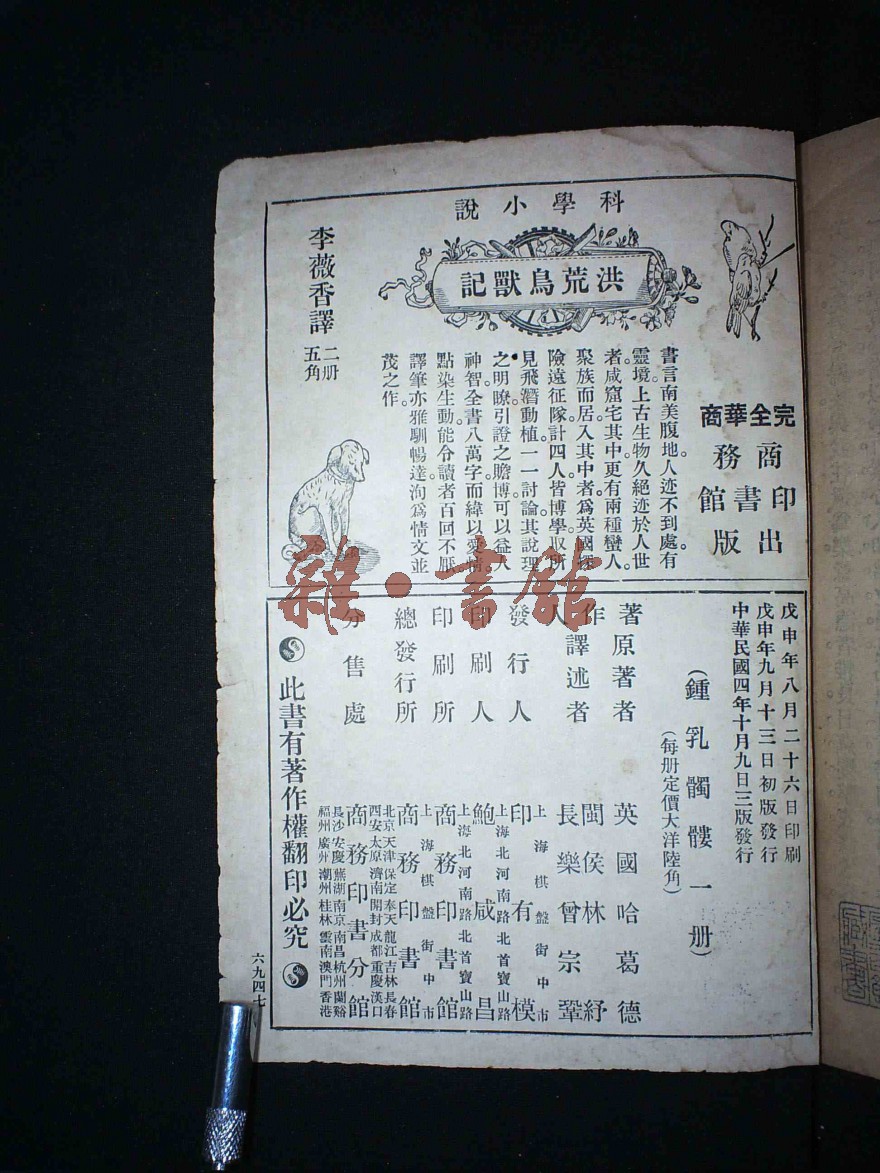 科學小說
洪荒鳥獸記
完全華商
商務
印書館
出版
書言南美腹地。人迹不到處。有
靈境。上古生物久絕迹於人世
者。咸窟宅其中。更有兩種蠻人。
聚族而居。入其中者。爲英國探
險遠征隊。計四人。皆博學。取所
見飛潛動植。一一討論。其說理
之明瞭。引證之贍博。可以益人
神智。全書八萬字。而緯以愛情。
點染生動。能令讀者百回不厭。
譯筆亦雅馴暢達。洵爲情文並
茂之作。
李薇香譯
二册
五角
戊申年八月二十六日印刷
戊申年九月十三日初版發行
中華民國四年十月九日三版發行
(鍾乳髑髏一册)
(每册定價大洋陸角)
著作人
原著者 英國哈葛德
譯述者 閩侯林紓
長樂曾宗鞏
發行人 印有模
上海棋盤街中市
印刷人 鮑咸昌
上海北河南路北首寶山路
印刷所 商務印書館
上海北河南路北首寶山路
總發行所 商務印書館
上海棋盤街中市
分售處 商務印書分館
北京天津保定奉天龍江吉林長春
西安太原濟南開封成都重慶漢口
長沙安慶蕪湖南京南昌杭州蘭谿
福州廣州潮州桂林雲南澳門香港
此書有著作權翻印必究
六九四七
雜·書館